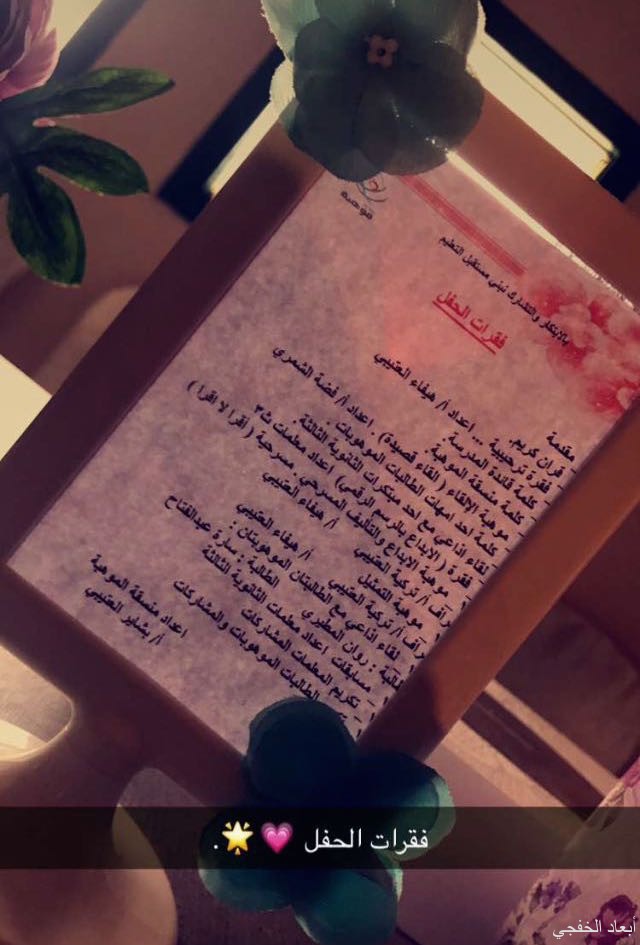 موهبة
بالابتكار والتشارك نبني مستقبل التعليم
فقرات الحفل
مقدمة
قران كريم.
فقرة ترحيبية ... اعداد أ/ هيفاء العتيبي
كلمة قائدة المدرسة.
كلمة منسقة الموهبة
موهبة الإلقاء ( القاء قصيدة ) . اعداد أ/ فضة الشمري
كلمة احد امهات الطالبات الموهوبات .
لقاء اذاعي مع احد مبتكرات الثانوية الثالثة
فقرة ( الابداع بالرسم الرقمي) اعداد معلمات ث٣
موهبة الابداع والتأليف المسرحي . مسرحية ( أقرا لا اقرا )
أ/ تركية العتيبي أ/ هيفاء العتيبي
موهبة التمثيل
أ/ تركية العتيبي أ/ هيفاء العتيبي
لقاء اذاعي مع الطالبتان الموهوبتان :
روان المطيري الطالبة : سارة عبدالفتاح
مسابقات اعداد معلمات الثانوية الثالثة
تكريم المعلمات المشاركات
الطالبات الموهوبات والمشاركات
اعداد منسقة الموهبة
أ/ بشاير العتيبي
فقرات الحفل 💗🌟.
أبعاد الخفجي